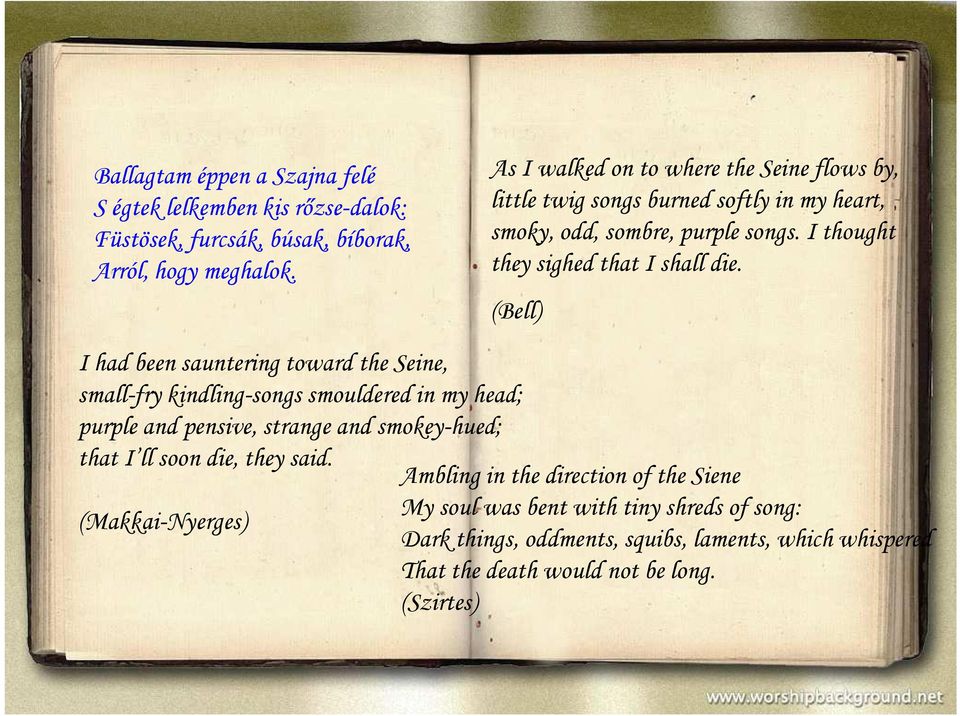 Ballagtam éppen a Szajna felé
S égtek lelkemben kis rőzse-dalok:
Füstösek, furcsák, búsak, bíborak,
Arról, hogy meghalok.
As I walked on to where the Seine flows by,
little twig songs burned softly in my heart,
smoky, odd, sombre, purple songs. I thought
they sighed that I shall die.
(Bell)
I had been sauntering toward the Seine,
small-fry kindling-songs smouldered in my head;
purple and pensive, strange and smokey-hued;
that I’ll soon die, they said.
(Makkai-Nyerges)
Ambling in the direction of the Siene
My soul was bent with tiny shreds of song:
Dark things, oddments, squibs, laments, which whispered
That the death would not be long.
(Szirtes)
www.worshipbackground.net